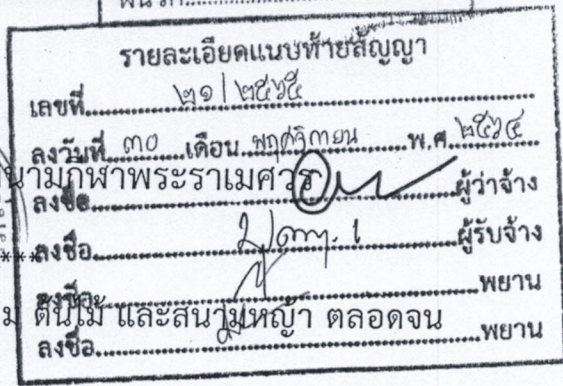 รายละเอียดแนบท้ายสัญญา
เลขที่ ๒๑/๒๕๖๕
ลงวันที่ ๓๐ เดือน พฤศจิกายน พ.ศ. ๒๕๖๔
นามกีฬาพระราเมศวร
ลงชื่อ ผู้ว่าจ้าง
ลงชื่อ ผู้รับจ้าง
ลงชื่อ พยาน
ม ต้นไม้ และสนามหญ้า ตลอดจน
ลงชื่อ พยาน